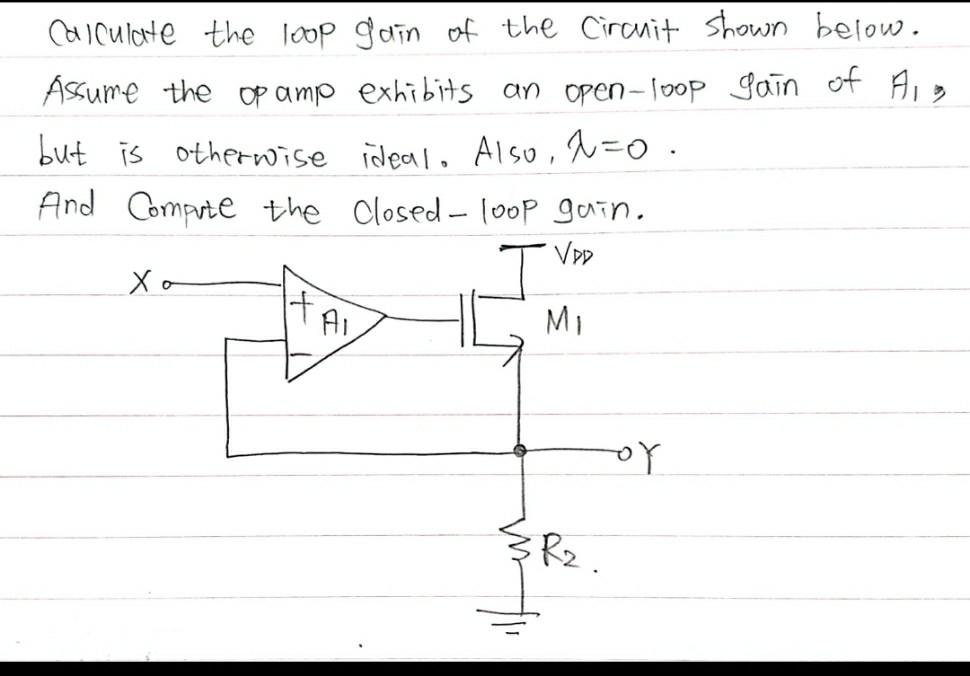 Calculate the loop gain of the Circuit shown below.
Assume the op amp exhibits an open-loop gain of A₁,
but is otherwise ideal. Also, λ=0.
And Compute the Closed-loop gain.
VDD
X
+
A₁
M₁
−
Y
R₂.